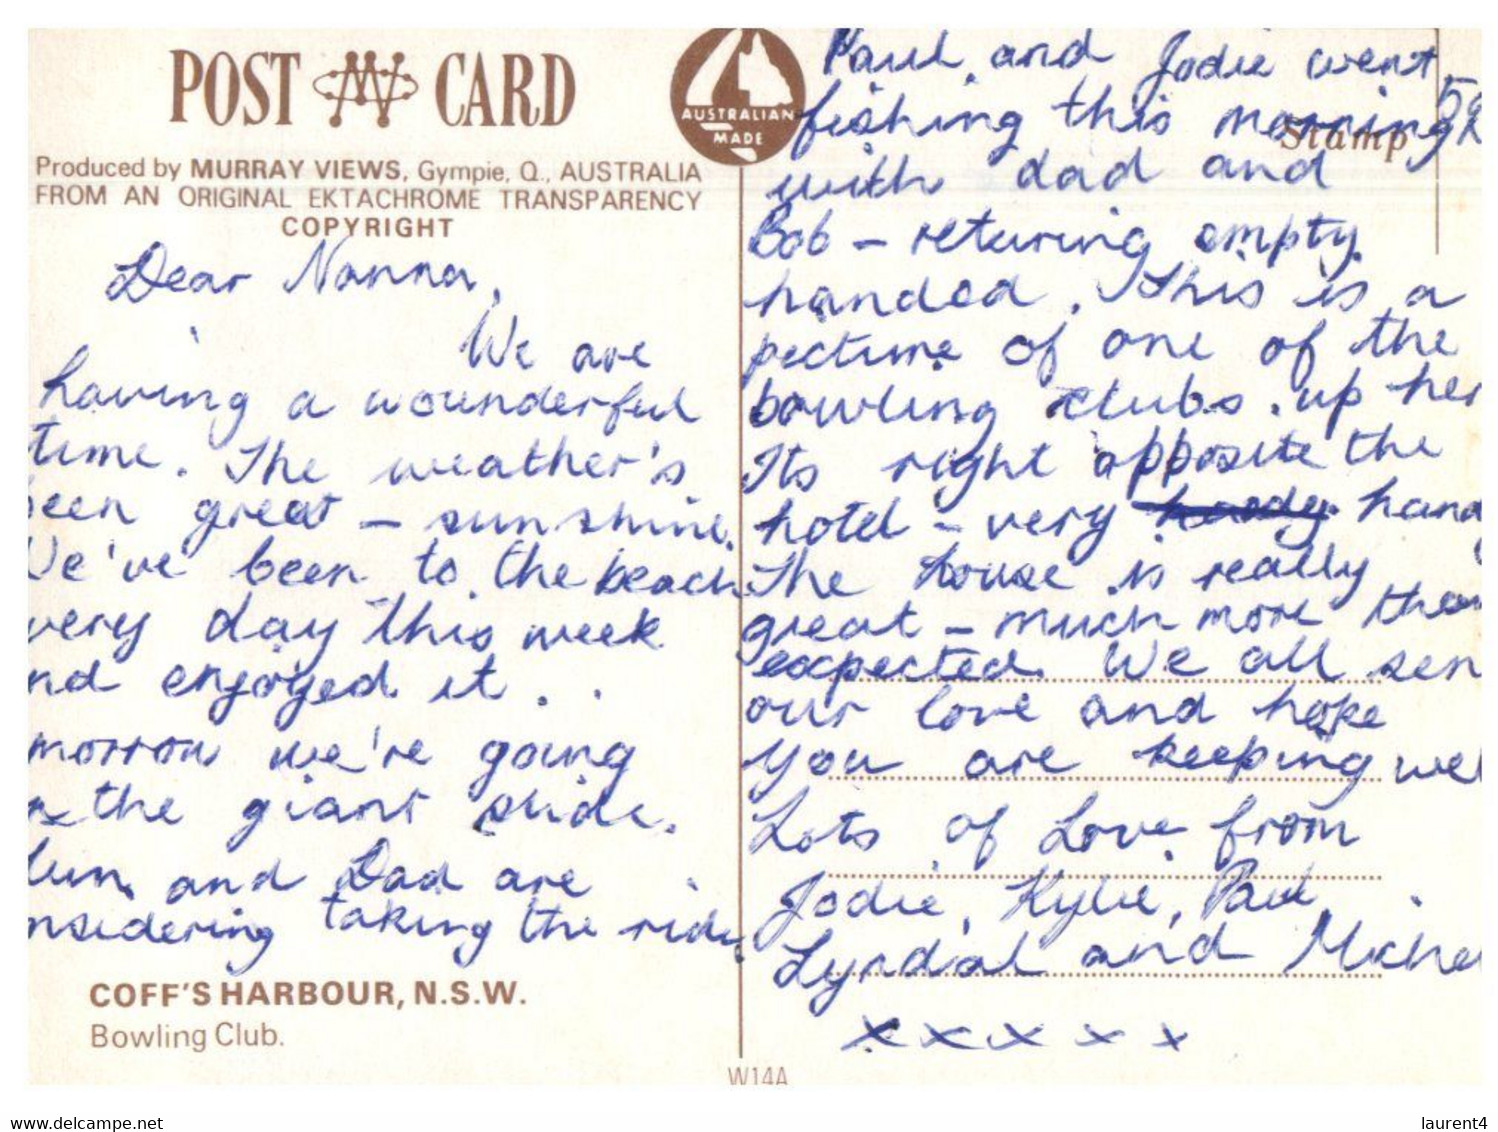 POST CARD
AUSTRALIAN
MADE
Produced by MURRAY VIEWS, Gympie, Q., AUSTRALIA
FROM AN ORIGINAL EKTACHROME TRANSPARENCY
COPYRIGHT
Dear Nanna,
We are
having a wounderful
time. The weather's
een great – sunshine.
We've been to the beach
very day this week
nd enjoyed it.
morrow we're going
the giant slide.
Mum and Dad are
nsidering taking the ride.
COFF'S HARBOUR, N.S.W.
Bowling Club.
Stamp
Paul and Jodie went
fishing this morning
with dad and
Bob – returing empty
handed. This is a
picture of one of the
bowling clubs up her
Its right opposite the
hotel – very hand
The house is really
great – much more than
expected. We all sen
our love and hope
you are keeping wel
Lots of Love from
Jodie, Kylie, Paul
Lyndal and Miche
x x x x x
W14A
www.delcampe.net
laurent4